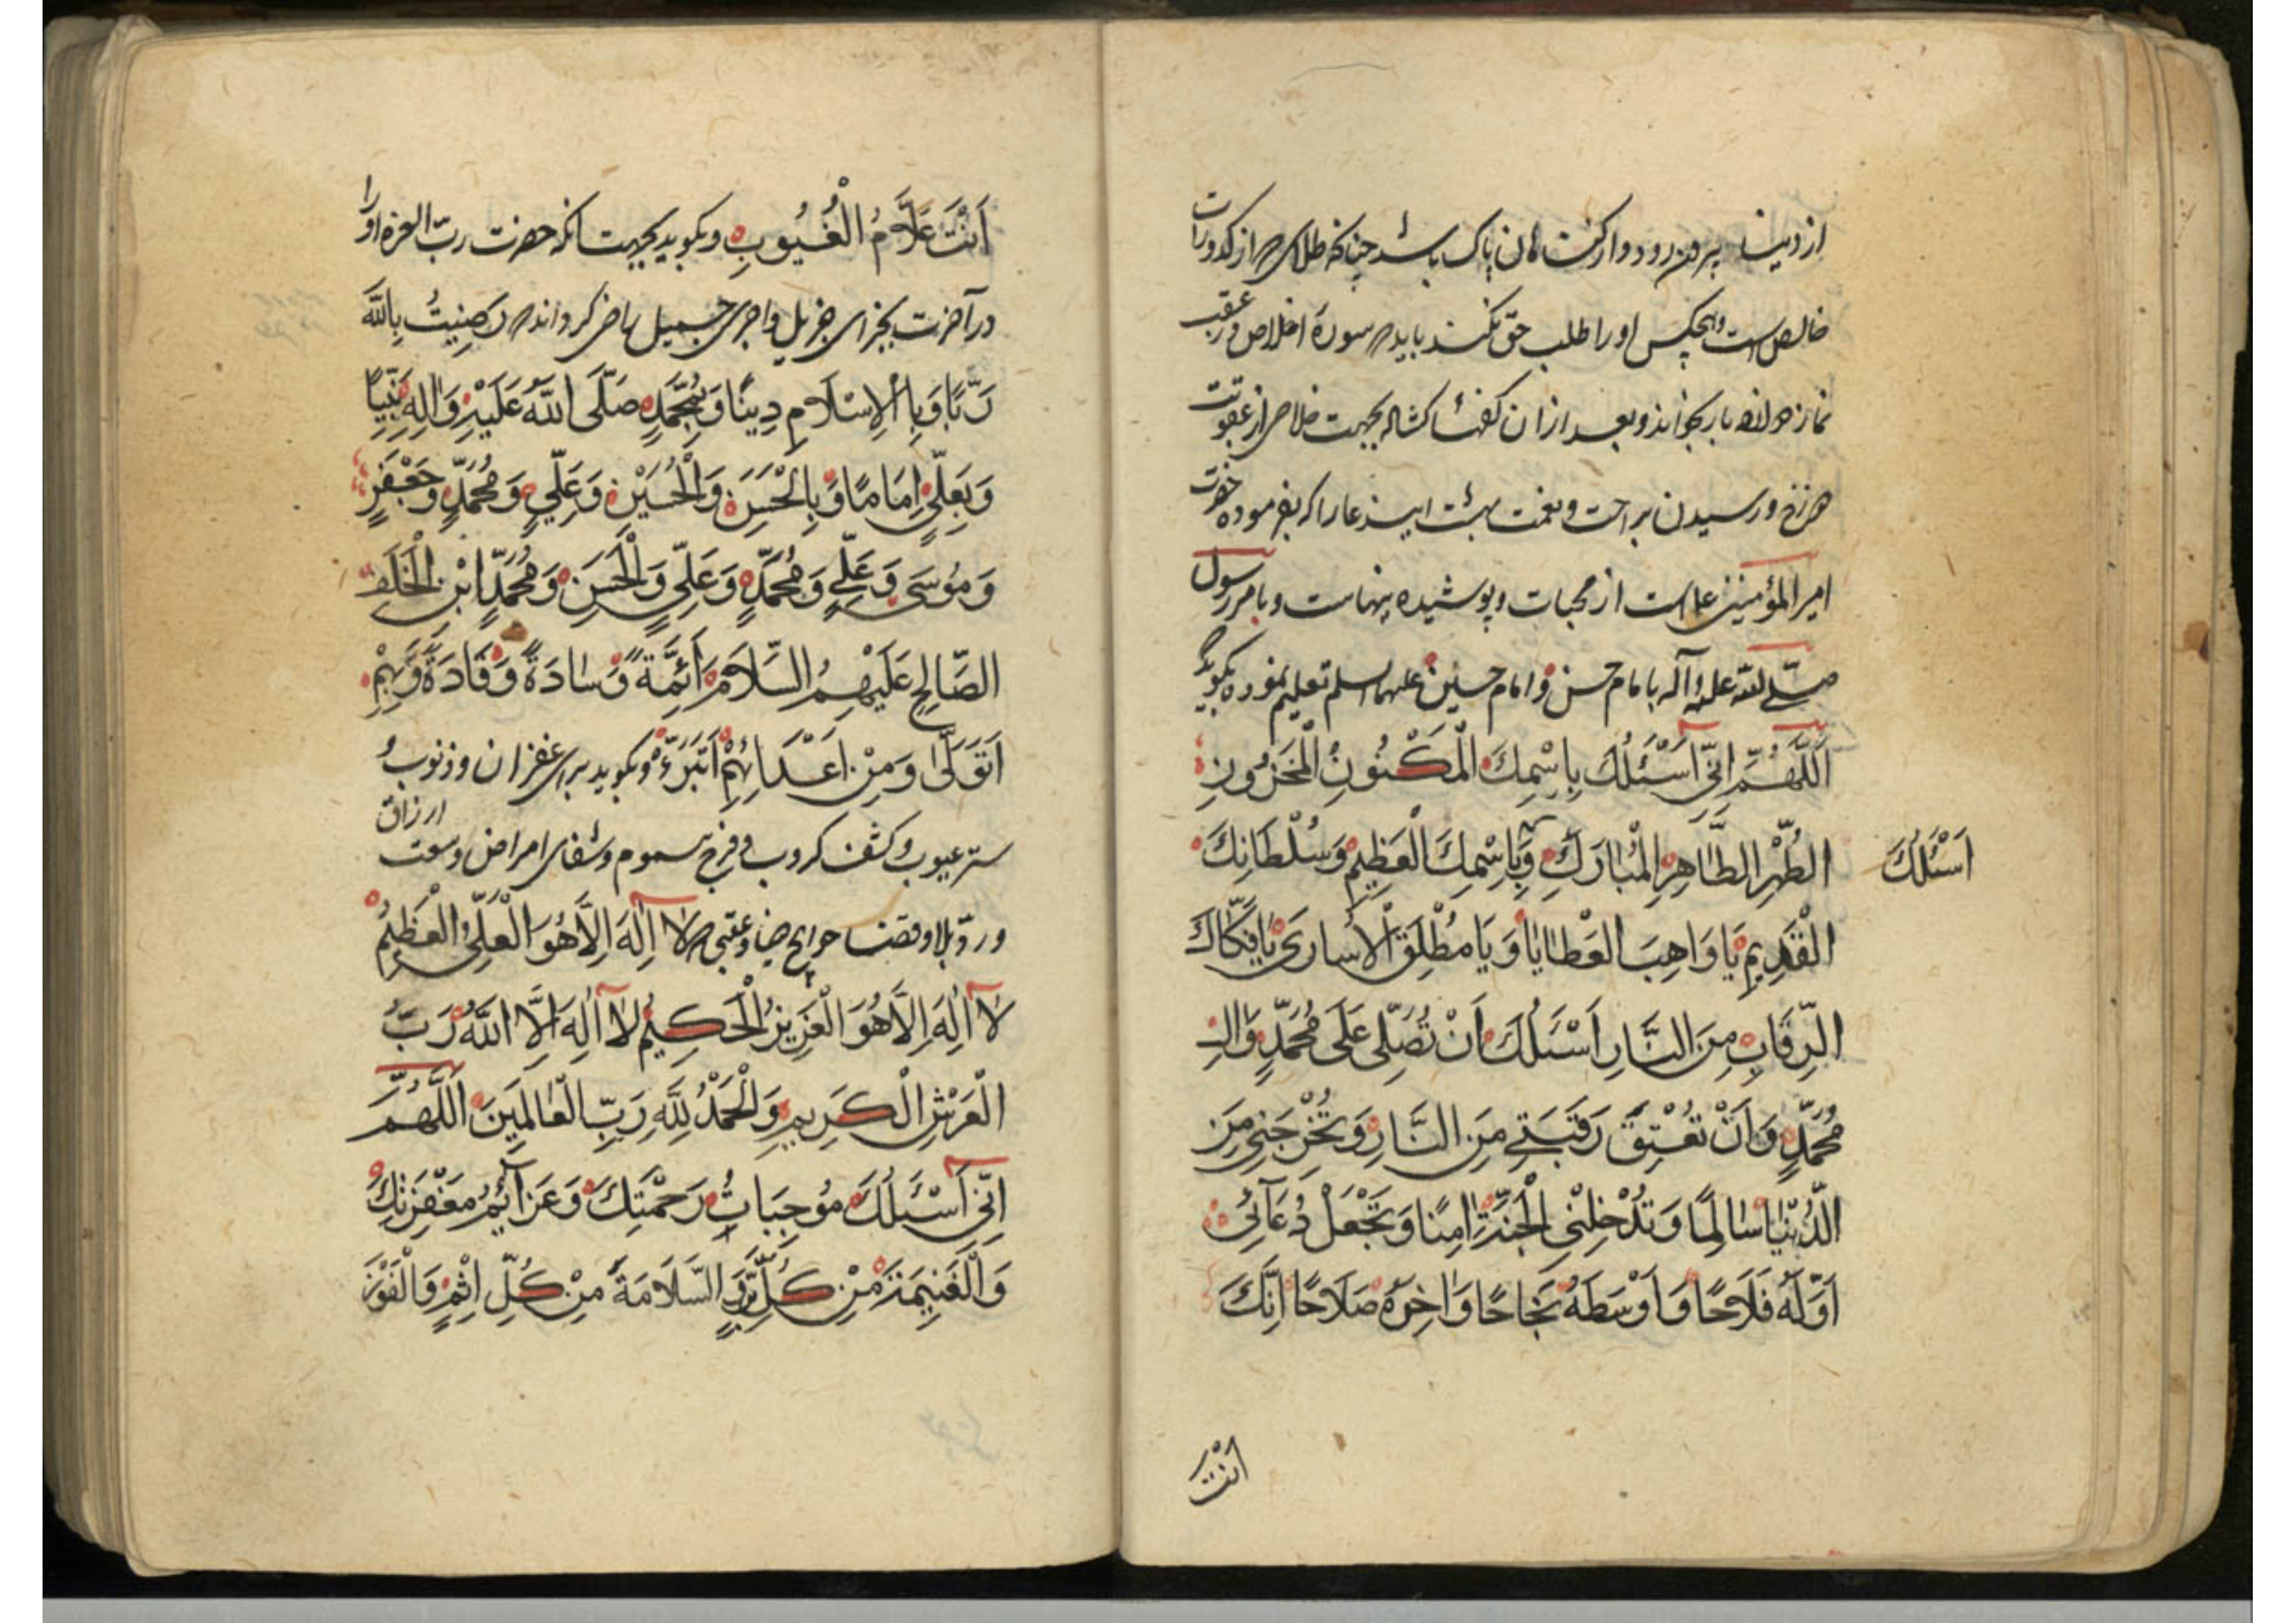 از دنیا بیرون رود و از گناهان پاک باشد چنانکه طلای که از کدورات
خالص است و هیچکس او را طلب حق نکند باید که سورهٔ اخلاص در عقب
نماز دوازده بار بخواند و بعد از ان کفها گشاده بجهت خلاصی از عقوبت
دوزخ و رسیدن براحت و نعمت بهشت این دعا را که بفرموده حضرت
امیر المؤمنین علی است از مخبیات و پوشیده پنهاست و بامر رسول
صلی الله علیه و آله بامام حسن و امام حسین علیهما السلم تعلیم نموده بگوید
اَللّٰهُمَّ اِنّی اَسْئَلُكَ بِاسْمِكَ الْمَكْنُونِ الْمَخْزُونِ
الطُّهْرِ الطَّاهِرِ الْمُبٰارَكِ وَبِاسْمِكَ الْعَظِیمِ وَسُلْطَانِكَ
اَسْئَلُكَ
الْقَدِیمِ یَا وَاهِبَ الْعَطٰایٰا وَ یَا مُطْلِقَ الْاُسٰاریٰ یٰا فَكّٰاكَ
الرِّقَابِ مِنَ النَّارِ اَسْئَلُكَ اَنْ تُصَلِّی عَلَی مُحَمَّدٍ وَاٰلِ
مُحَمَّدٍ وَ اَنْ تُعْتِقَ رَقَبَتِی مِنَ النَّارِ وَ تُخْرِجَنِی مِنَ
الدُّنْیٰا سٰالِمًا وَ تُدْخِلَنِی الْجَنَّةَ اٰمِنًا وَ تَجْعَلَ دُعَآئِی
اَوَّلَهُ فَلَاحًا وَ اَوْسَطَهُ نَجَاحًا وَ اٰخِرَهُ صَلَاحًا اِنَّكَ
انت
اَنْتَ عَلَّامُ الْغُیُوبِ و بگوید بجهت آنکه حضرت رب العزه او را
در آخرت بجزای جزیل و اجری جمیل راضی گرداند که رَضِیتُ بِاللّٰهِ
رَبًّا وَ بِالْاِسْلَامِ دِینًا وَ بِمُحَمَّدٍ صَلَّی اللّٰهُ عَلَیْهِ وَ اٰلِهِ نَبِیًّا
وَ بِعَلِیٍّ اِمَامًا وَ بِالْحَسَنِ وَ الْحُسَیْنِ وَ عَلِیٍّ وَ مُحَمَّدٍ وَ جَعْفَرٍ
وَ مُوسَی وَ عَلِیٍّ وَ مُحَمَّدٍ وَ عَلِیٍّ وَ الْحَسَنِ وَ مُحَمَّدٍ ابْنِ الْخَلَفِ
الصَّالِحِ عَلَیْهِمُ السَّلَامُ اَئِمَّةً وَ سٰادَةً وَ قَادَةً وَ بِهِمْ
اَتَوَلّٰی وَ مِنْ اَعْدَائِهِمْ اَتَبَرَّءُ و بگوید برای غفران و ذنوب و
ستر عیوب و کشف کروب و فرج هموم و شفای امراض و وسعت ارزاق
و رد بلا و قضا حوایج دنیا و عقبی که لا اِلٰهَ اِلَّا هُوَ الْعَلِیُّ الْعَظِیمُ
لا اِلٰهَ اِلَّا هُوَ الْعَزِیزُ الْحَكِیمُ لا اِلٰهَ اِلَّا اللّٰهُ رَبُّ
الْعَرْشِ الْكَرِیمِ وَ الْحَمْدُ لِلّٰهِ رَبِّ الْعٰالَمِینَ اَللّٰهُمَّ
اِنّی اَسْئَلُكَ مُوجِبَاتِ رَحْمَتِكَ وَ عَزَآئِمَ مَغْفِرَتِكَ
وَ الْغَنِیمَةَ مِنْ كُلِّ بِرٍّ وَ السَّلَامَةَ مِنْ كُلِّ اِثْمٍ وَ الْفَوْزَ